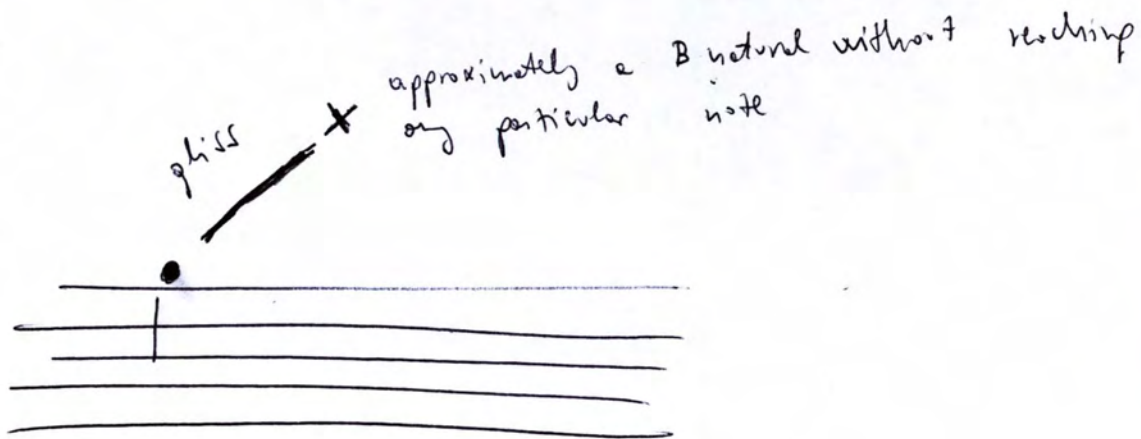 approximately a B natural without reaching
any particular note
gliss